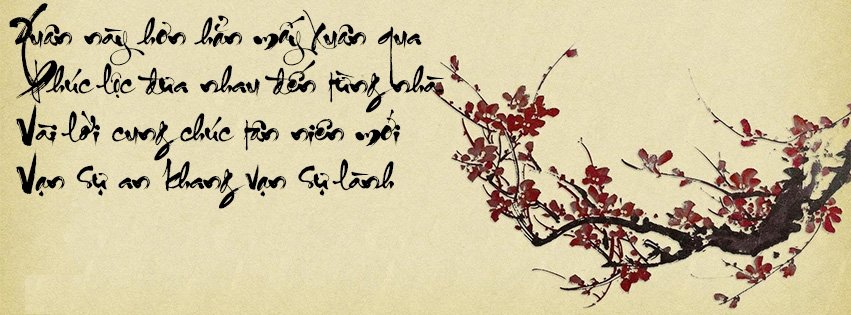 Xuân này hơn hẳn mấy Xuân qua
Phúc lộc đưa nhau đến từng nhà
Vài lời cung chúc tân niên mới
Vạn sự an khang vạn sự lành